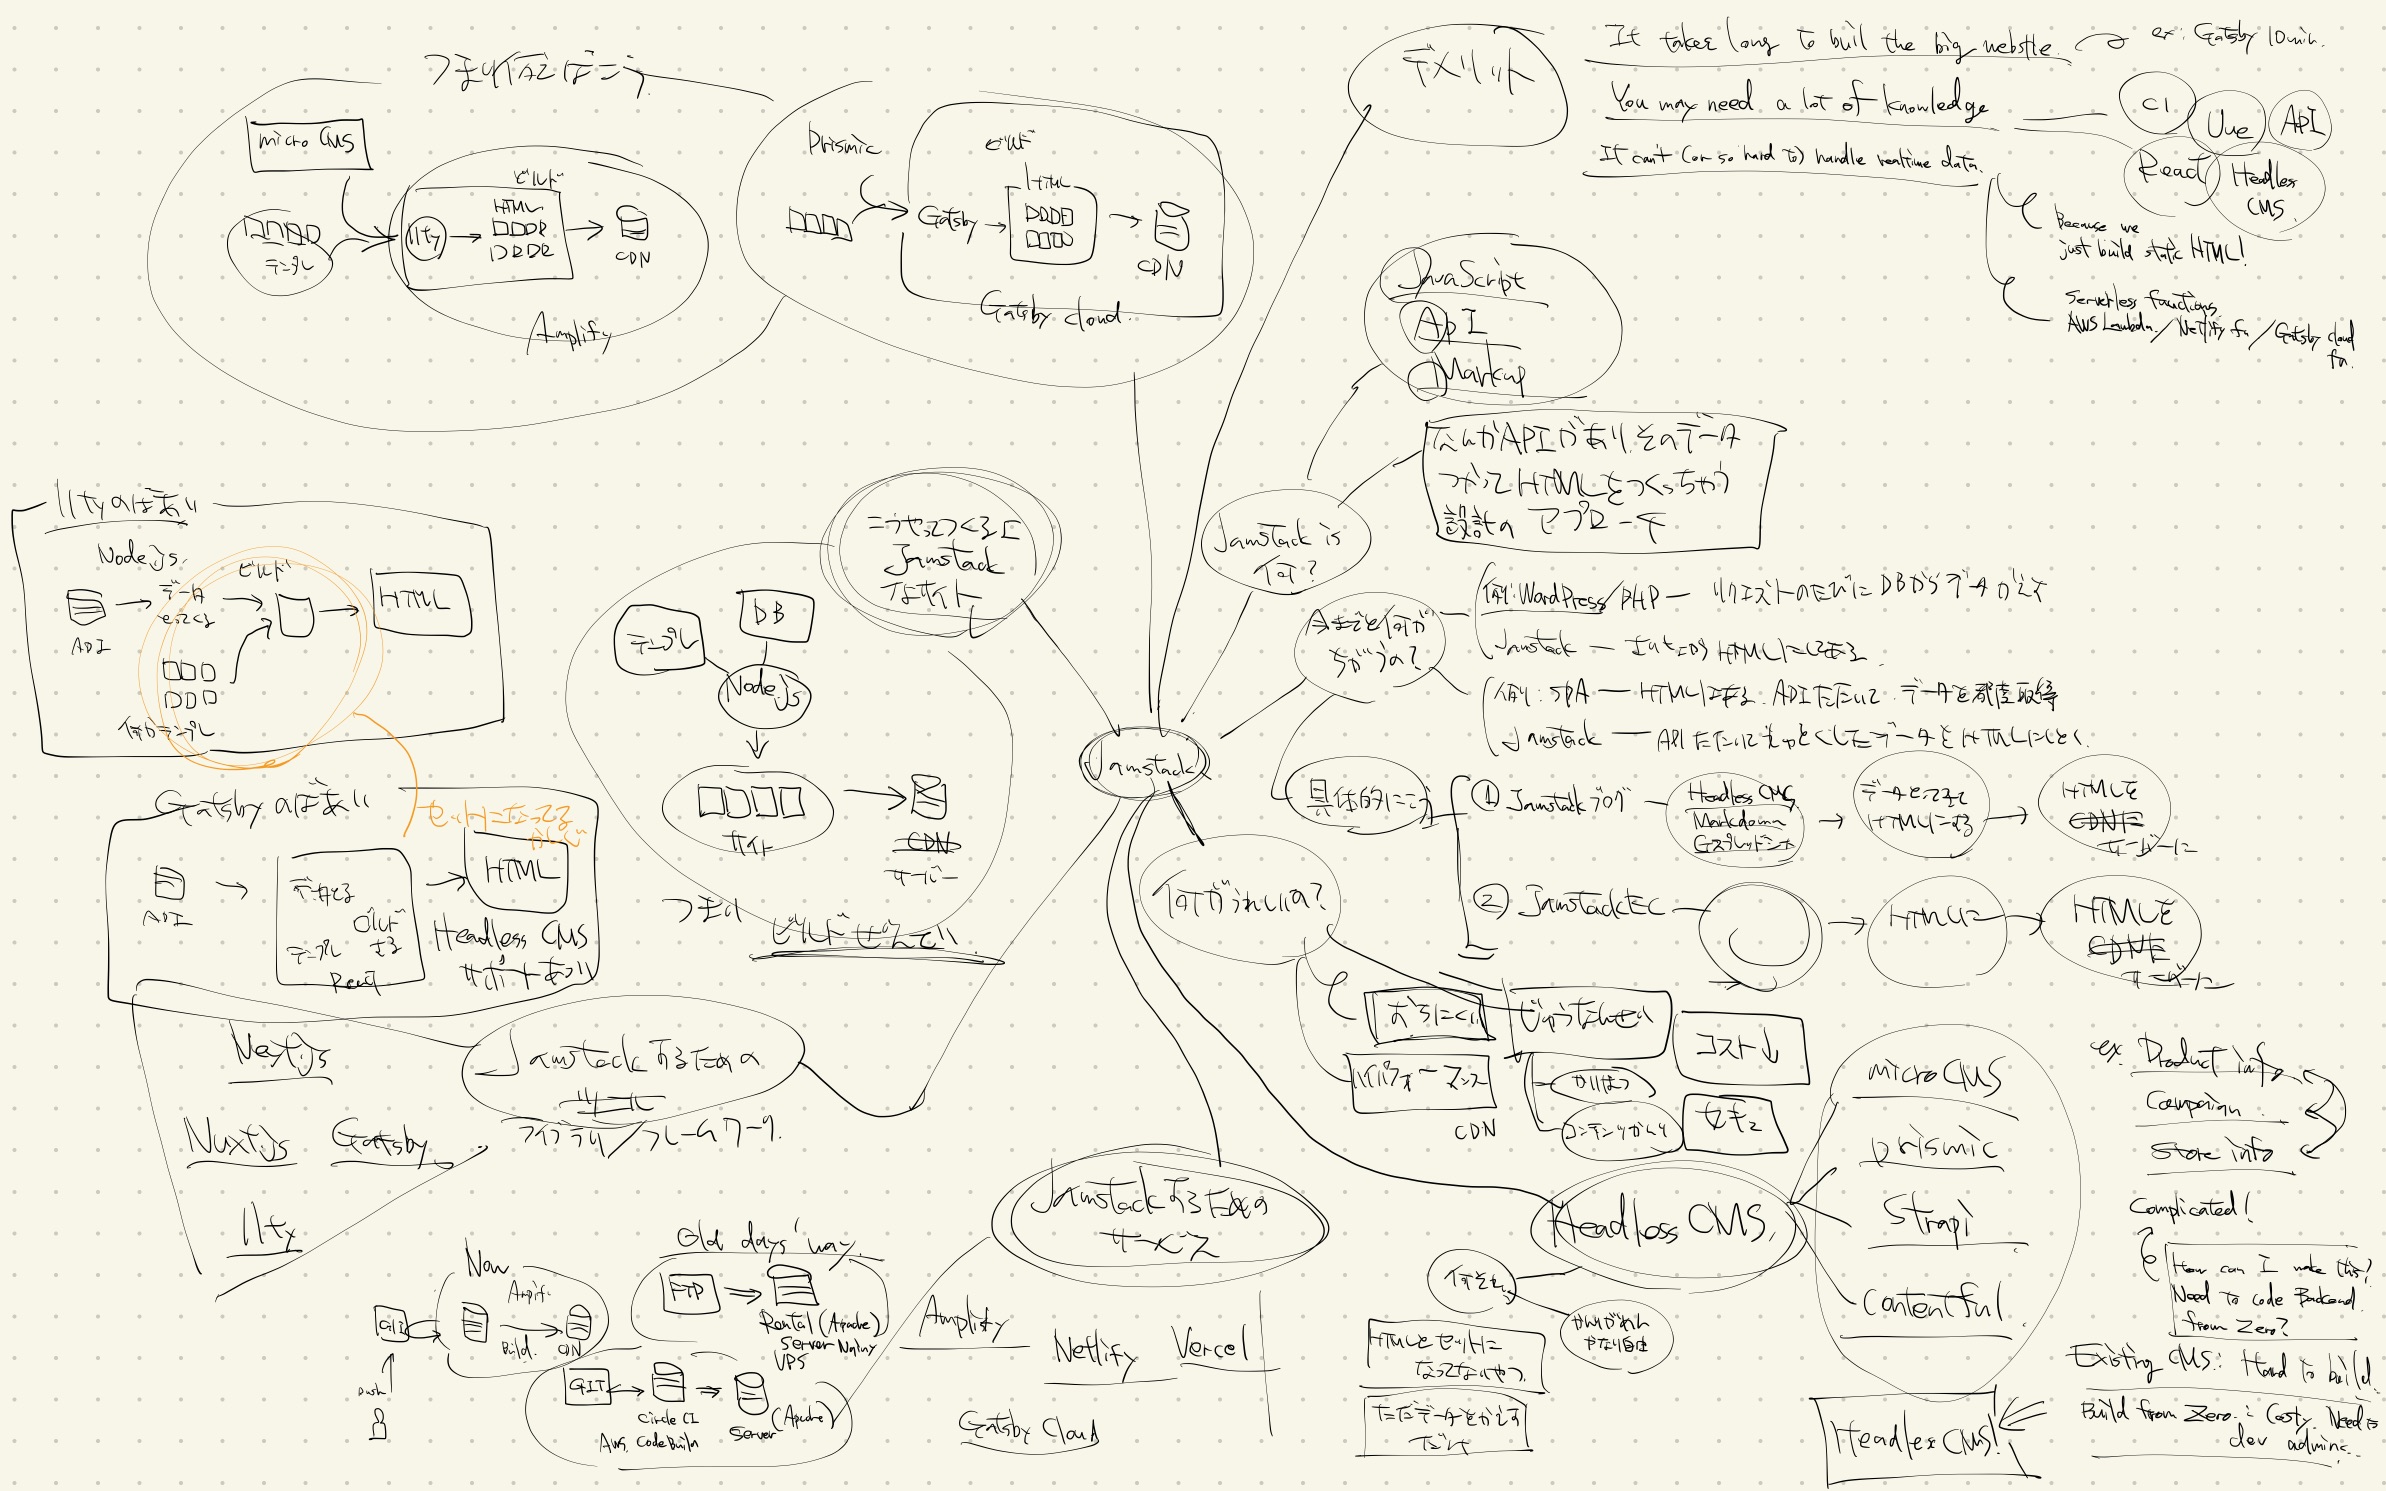 つまり例えばこう
micro CMS
テンプレ
11ty
ビルド
HTML
CDN
Amplify
Prismic
Gatsby
ビルド
HTML
CDN
Gatsby cloud.
デメリット
It takes long to buil the big website.
ex. Gatsby 10min.
You may need a lot of knowledge
CI
Vue
API
React
Headless
CMS
It can't (or so hard to) handle realtime data.
Because we
just build static HTML!
Serverless functions
AWS Lambda / Netlify fn / Gatsby cloud
fn.
JavaScript
API
Markup
なんかAPIがあり、そのデータ
つかってHTMLをつくっちゃう
設計の アプローチ
Jamstack is
何?
こうやってつくると
Jamstack
なサイト
テンプレ
DB
Node.js
サイト
CDN
サーバー
つまり
ビルドせんでい
11tyのばあい
Node.js
API
データ
とってくる
ビルド
HTML
何かテンプレ
Gatsby のばあい
セットになってる
かんじ
API
データとる
ビルド
テンプレ する
React
HTML
Headless CMS
サポートあつい
Jamstack
今までと何が
ちがうの?
例: WordPress/PHP — リクエストのたびに DBからデータがえす
Jamstack —
HTMLにしてある
例: SPA — HTMLはある. APIたたいて. データを都度取得
Jamstack — APIたたいてしゅとくしたデータを HTMLにしとく.
具体的にこう
① Jamstackブログ
Headless CMS
Markdown
Gスプレッドシート
データとってきて
HTMLにする
HTMLを
CDNに
サーバーに
② JamstackEC
HTMLに
HTMLを
CDNに
サーバーに
何がうれしいの?
おちにくい
じゅうなんせい
コスト↓
ハイパフォーマンス
CDN
かいはつ
コンテンツかんり
セキュ
Jamstack するための
ツール
ライブラリ/フレームワーク.
Next.js
Nuxt.js
Gatsby
11ty
Jamstack するための
サービス
Amplify
Netlify
Vercel
Gatsby Cloud
Now
Amplify
GIT
Build.
CDN
Push
Old days' way.
FTP
Rental (Apache)
Server Nginx
VPS
GIT
Circle CI
AWS. CodeBuild
Server
(Apache)
Headless CMS.
何それ
HTMLとセットに
なってないやつ.
ただデータをかえす
だけ
かんりがめん
かなり自由
microCMS
prismic
Strapi
Contentful
ex. Product info
Campaign
Store info
Complicated!
How can I make this?
Need to code Backend
from Zero?
Existing CMS: Hard to build.
Build from Zero.: Costy. Need to
dev admin..
Headless CMS!